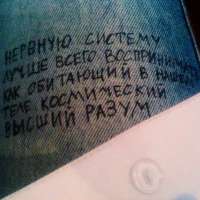 НЕРВНУЮ СИСТЕМУ
ЛУЧШЕ ВСЕГО ВОСПРИНИМАТЬ
КАК ОБИТАЮЩИЙ В НАШЕМ
ТЕЛЕ КОСМИЧЕСКИЙ
ВЫСШИЙ РАЗУМ